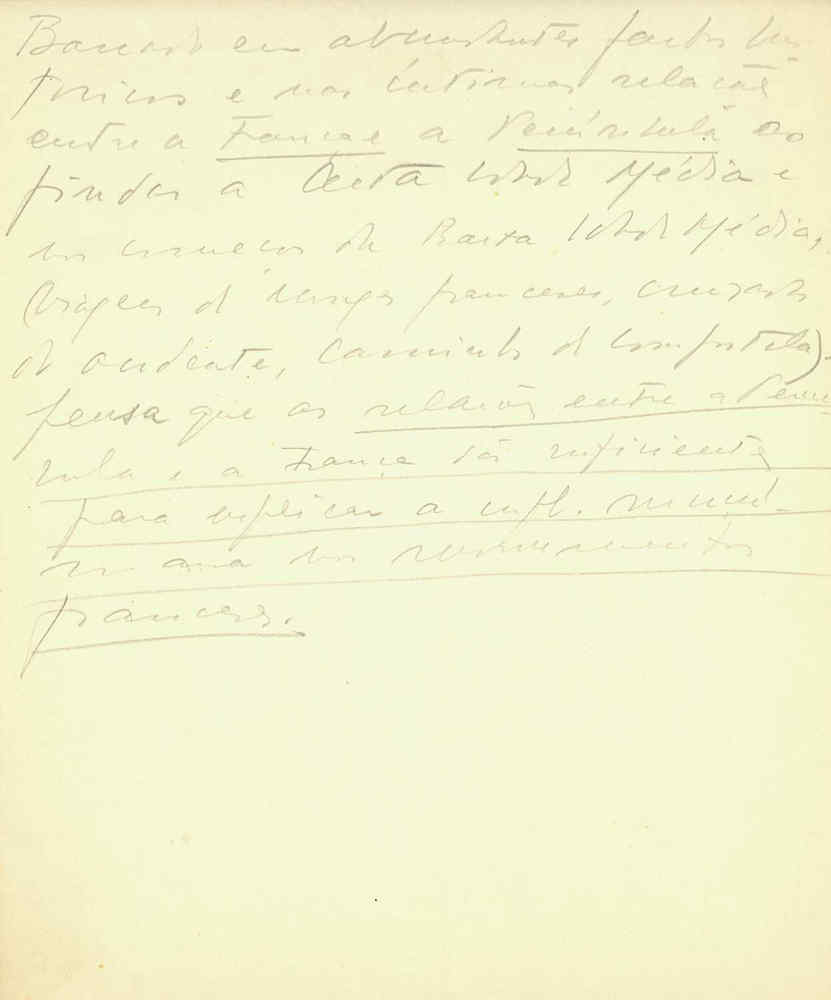 Baseado em abundantes factos his-
tóricos e nas íntimas relações
entre a França e a Península ao
findar a Alta Idade Média e
nos começos da Baixa Idade Média,
(viagens de monges franceses, cruzada
do ocidente, caminho de Compostela).
pensa que as relações entre a Penín-
sula e a França são suficientes
para explicar a infl. muçul-
mana nos
franceses.